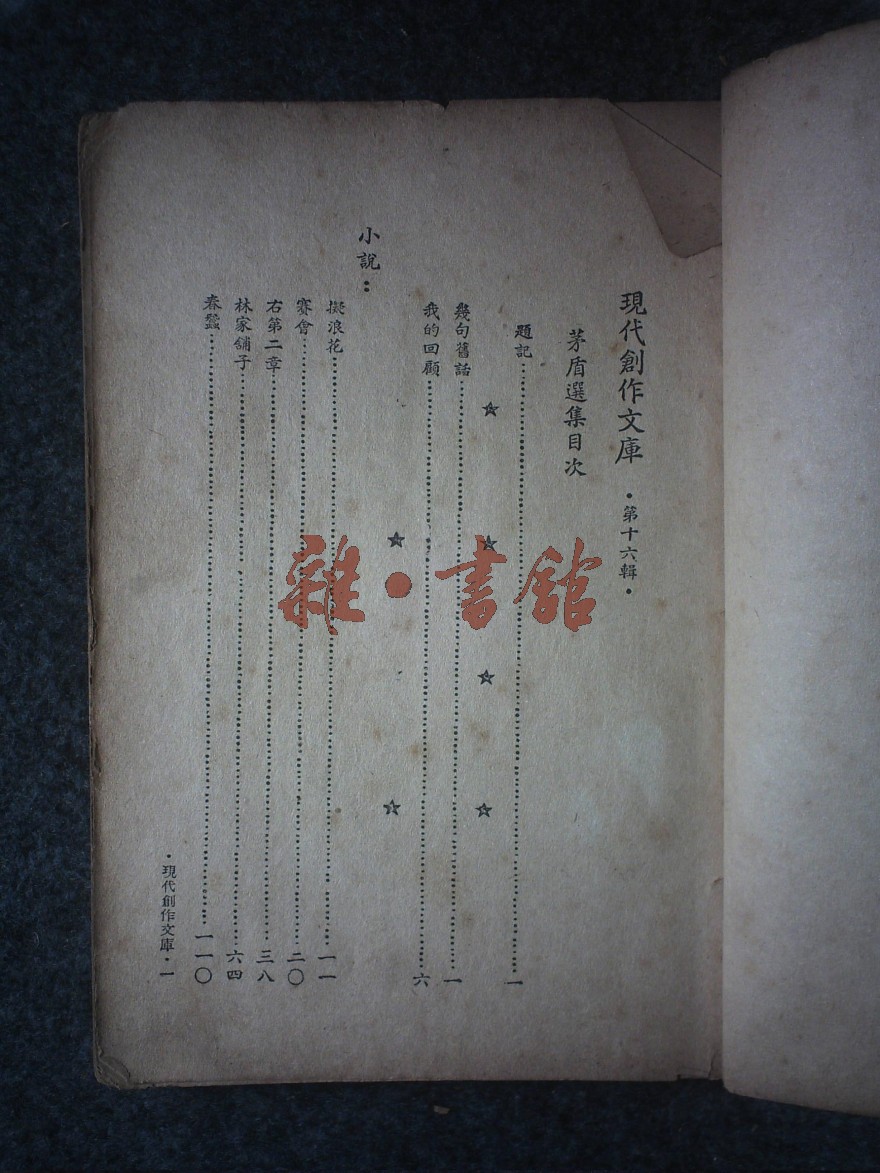 現代創作文庫 ・第十六輯・
茅盾選集目次
題記……一
幾句舊話……一
我的回顧……六
小說：
擬浪花……一一
賽會……二〇
右第二章……三八
林家舖子……六四
春蠶……一一〇
・現代創作文庫・一
雜・書館